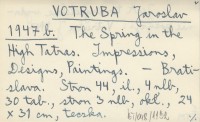 VOTRUBA Jaroslav
1947 b. The Spring in the
High Tatras. Impressions,
Designs, Paintings. - Brati-
slava. Stron 44, il., 4 nlb,
30 tab., stron 3 nlb, okł., 24
x 31 cm, teczka.